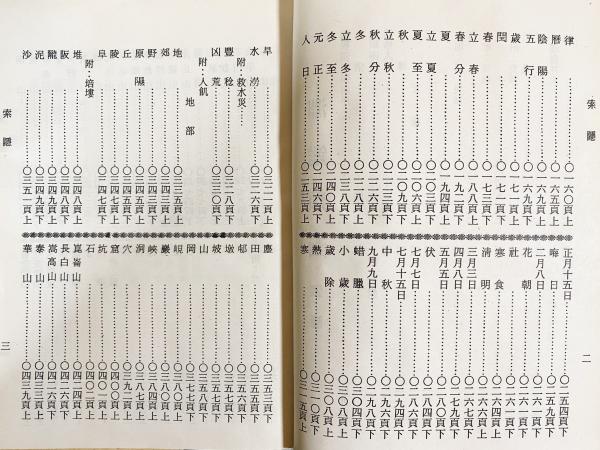 索隱
律……〇一六〇頁上
曆……〇一六五頁下
陰陽……〇一六九頁上
五行……〇一六九頁下
歲……〇一七一頁上
閏……〇一七一頁下
春……〇一七三頁上
立春……〇一八八頁上
春分……〇一九二頁下
夏……〇一九四頁上
立夏……〇二〇三頁上
夏至……〇二〇六頁上
秋……〇二〇九頁下
立秋……〇二二三頁上
秋分
冬
立冬……〇二三八頁上
冬至……〇二四〇頁上
元正……〇一四六頁下
人日……〇一五三頁上
正月十五日……〇一五四頁下
晦日……〇一五九頁下
二月八日……〇一六一頁上
花朝……〇一六一頁下
社
寒食
清明
三月三日
四月八日
五月五日
伏
七月七日
七月十五日
中秋
九月九日
蜡臘
小歲
歲除
熱
寒
二
旱……〇三二一頁上
水澇……〇三二六頁上
附：救水災
豐稔……〇三二八頁下
凶荒……〇三三〇頁下
附：人飢
地部
地……〇三三五頁上
郊……〇三四三頁上
野……〇三四三頁下
原隰……〇三四五頁上
丘……〇三四五頁下
陵……〇三四七頁上
阜……〇三四七頁下
附：培塿
堆……〇三四八頁上
阪……〇三四八頁下
隴……〇三四九頁上
泥……〇三四九頁下
沙……〇三五一頁上
塵……〇三五三頁下
田……〇三五五頁下
邨……〇三五六頁下
墩……〇三五七頁上
坡……〇三五七頁下
山……〇三五八頁上
岡……〇三七七頁下
峴……〇三八〇頁上
巖……〇三八〇頁下
峽……〇三八四頁上
洞……〇三八七頁上
穴……〇三九二頁上
窟……〇四〇〇頁上
坑……〇四〇一頁上
石……〇四〇二頁上
崑崙山……〇四二四頁上
長白山……〇四二六頁下
嵩高山……〇四二六頁下
泰山……〇四三一頁上
華山……〇四三九頁上
索隱
三